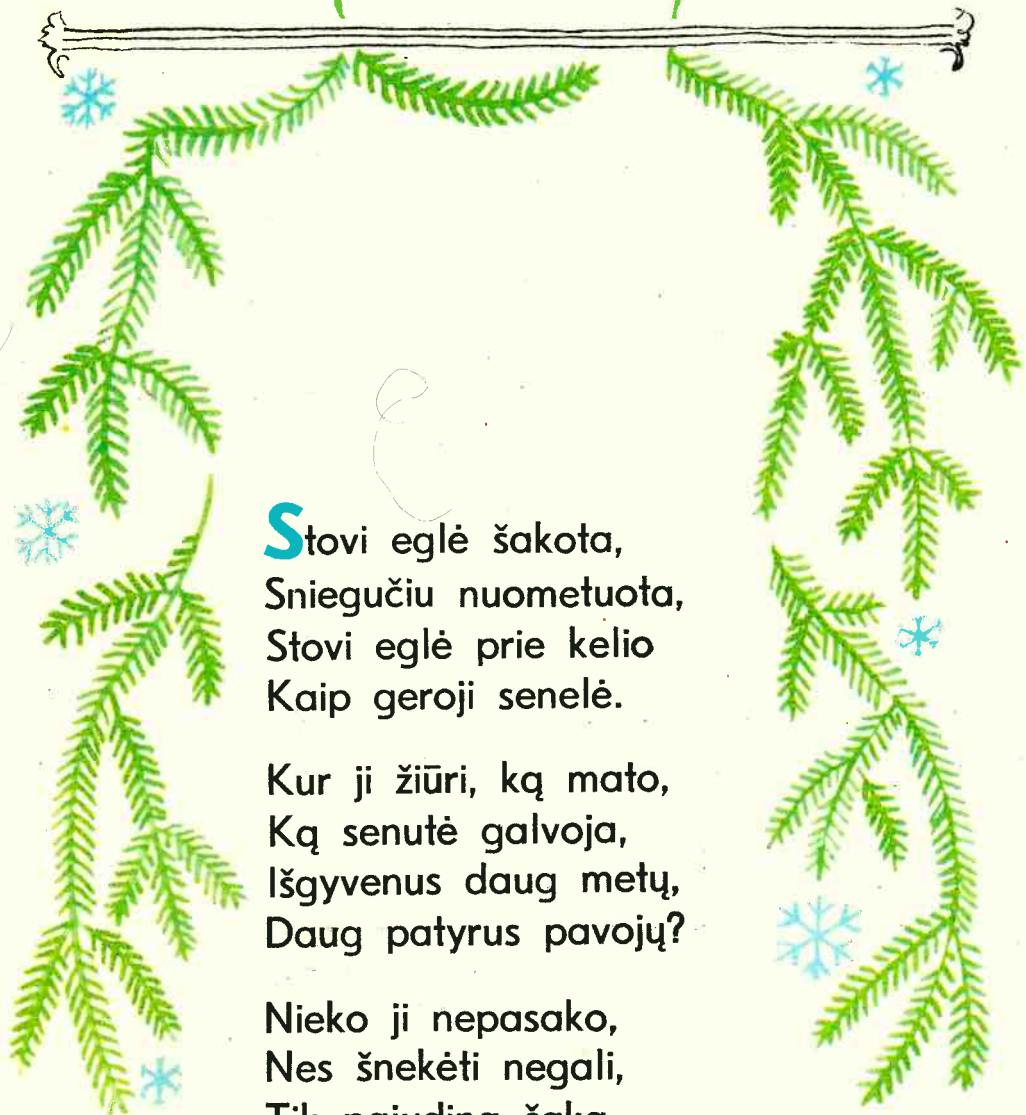 Stovi eglė šakota,
Sniegučiu nuometuota,
Stovi eglė prie kelio
Kaip geroji senelė.
Kur ji žiūri, ką mato,
Ką senutė galvoja,
Išgyvenus daug metų,
Daug patyrus pavojų?
Nieko ji nepasako,
Nes šnekėti negali,
Tik pajudina šaką